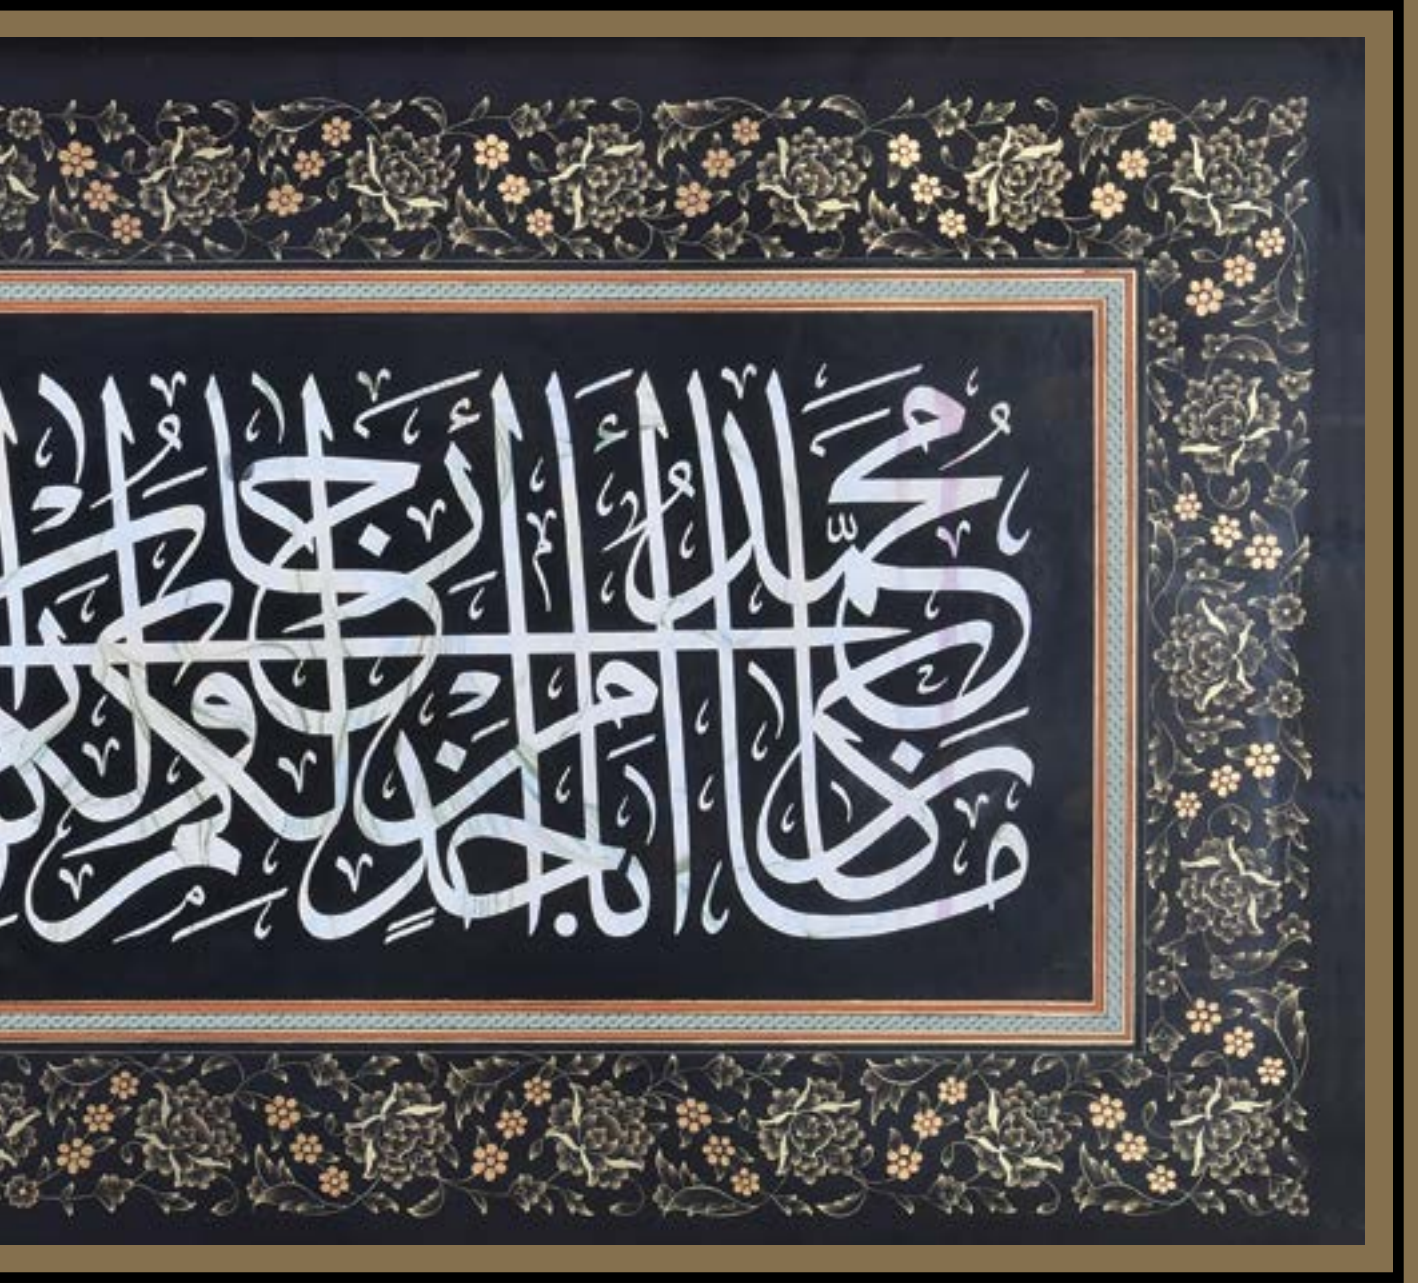 ما كان محمد أبا أحد من رجالكم ولكن